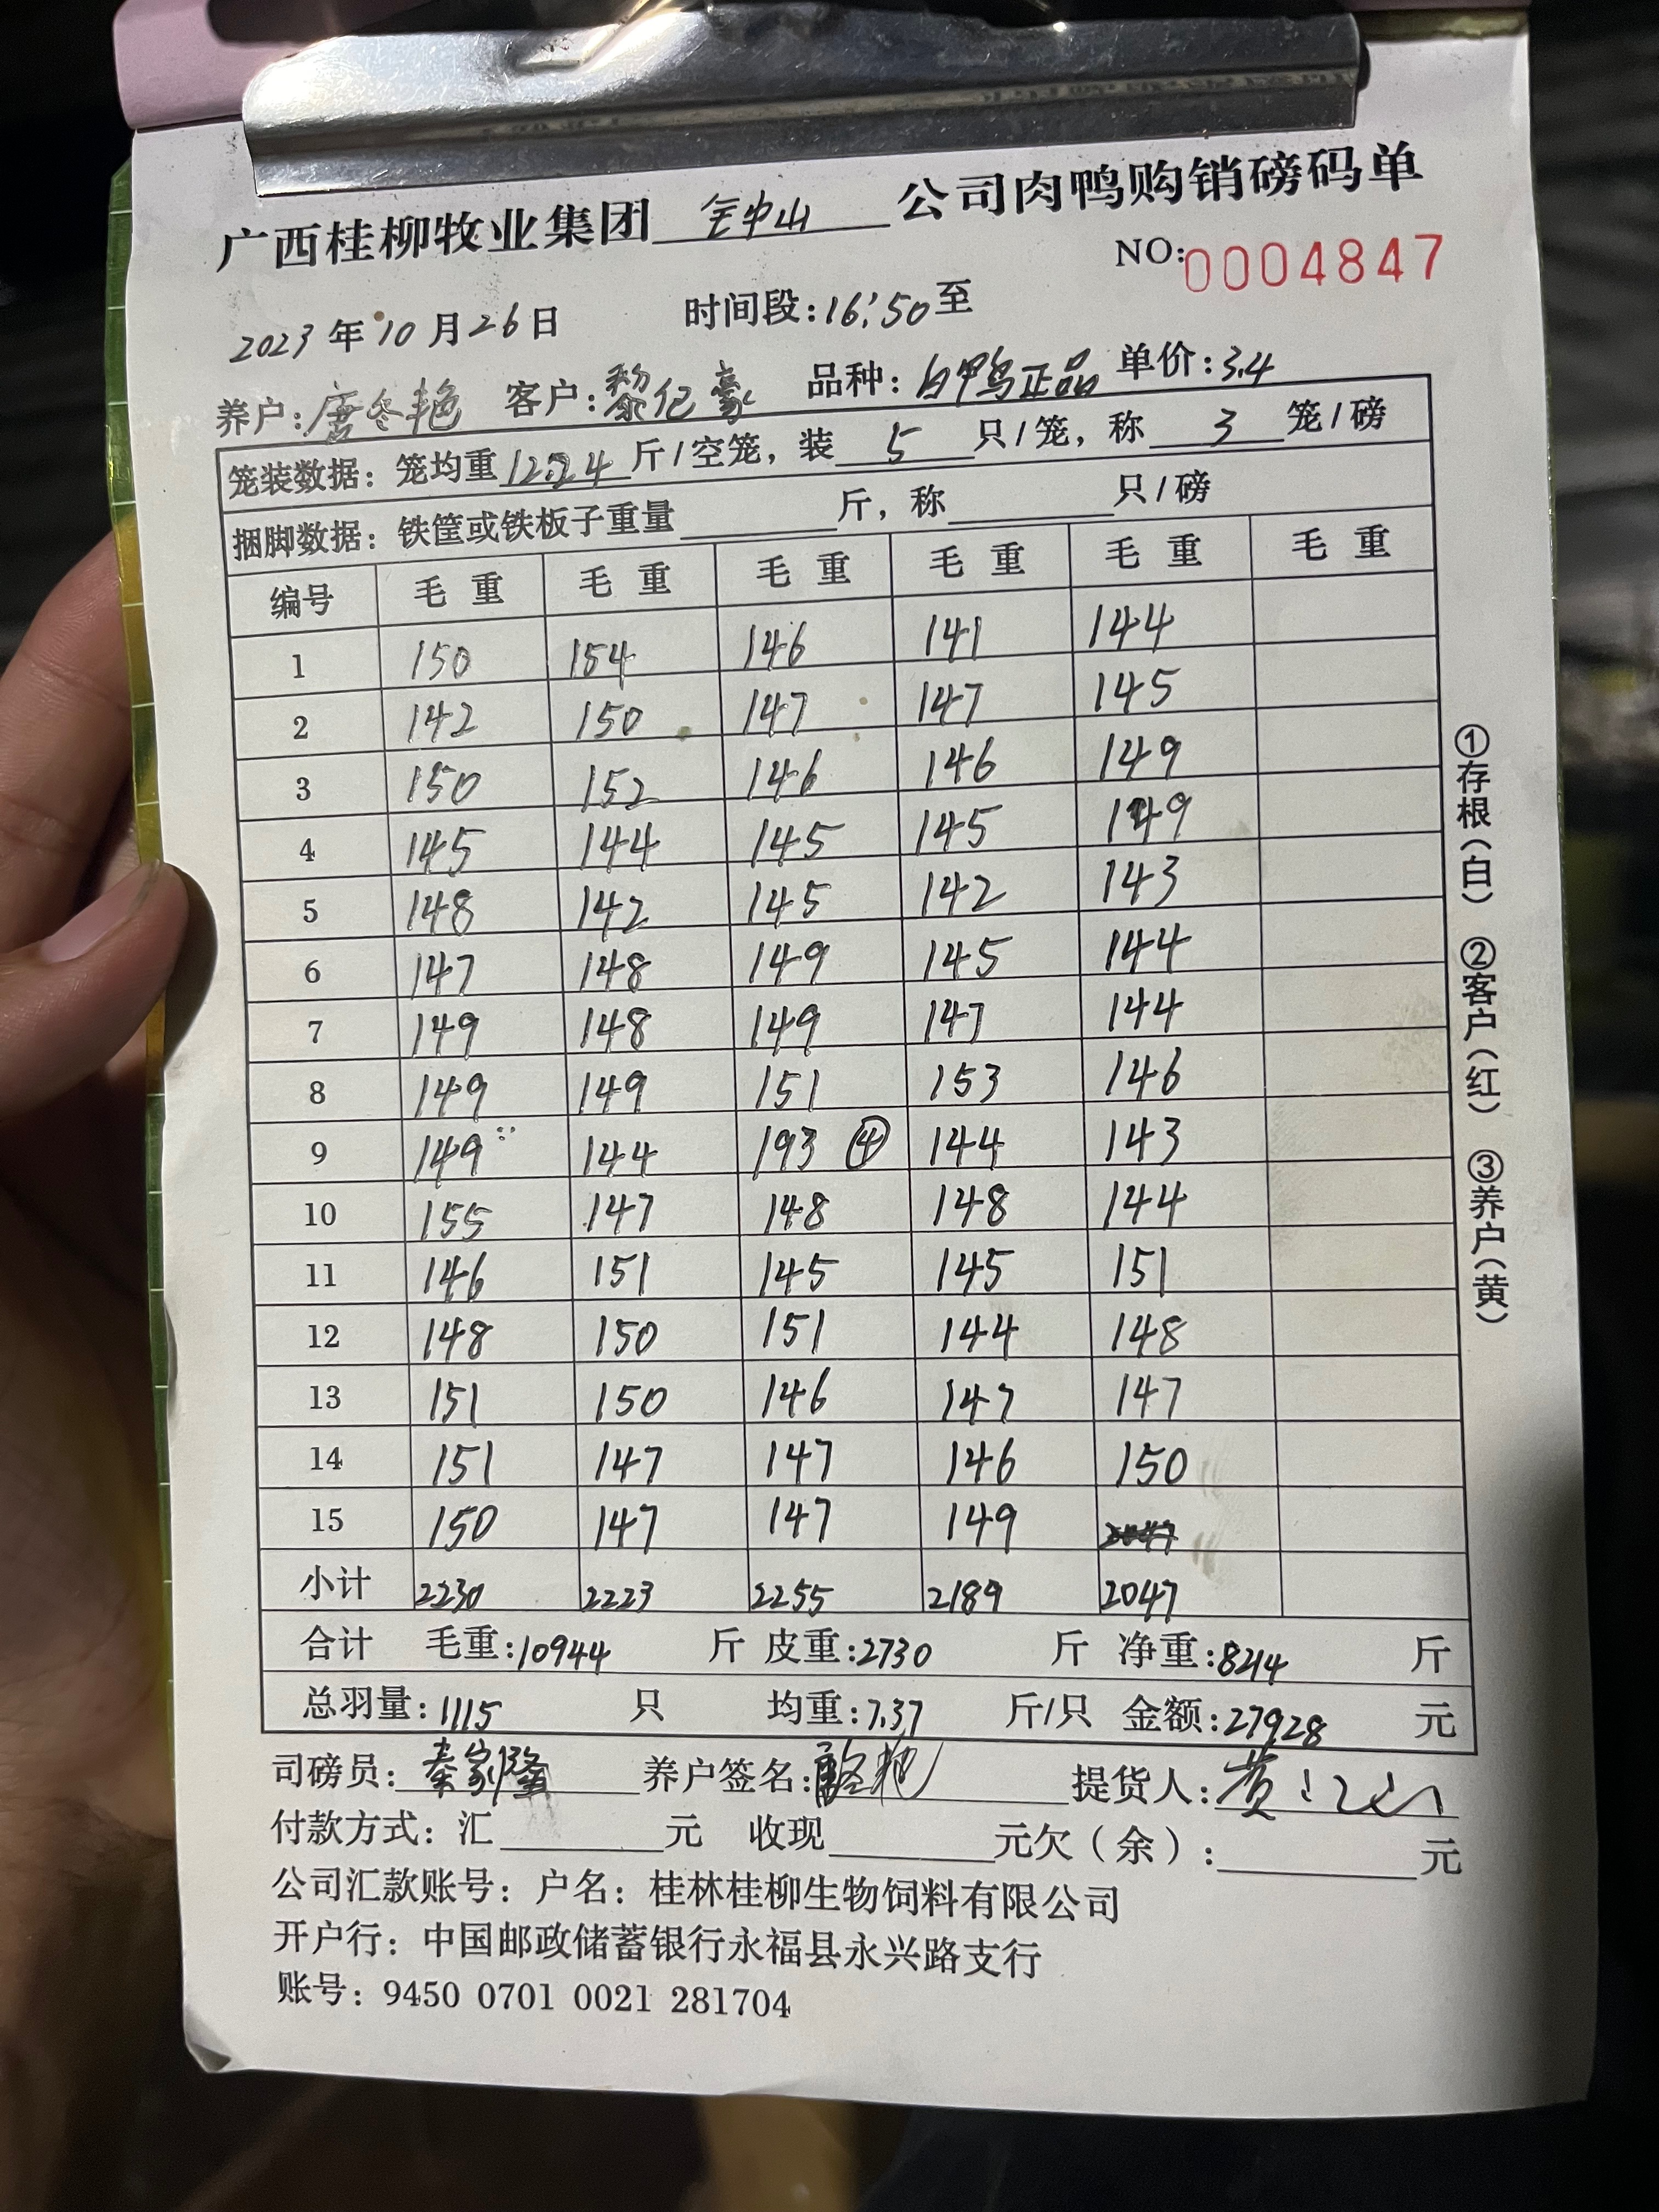 广西桂柳牧业集团 全中山 公司肉鸭购销磅码单
NO:0004847
2023年10月26日 时间段:16:50至
养户:唐冬艳 客户:黎亿豪 品种:白甲鸟正品 单价:3.4
笼装数据:笼均重12.24斤/空笼,装5只/笼,称3笼/磅
捆脚数据:铁筐或铁板子重量 斤,称 只/磅
编号 毛重 毛重 毛重 毛重 毛重 毛重
1 150 154 146 141 144
2 142 150 147 147 145
3 150 152 146 146 149
4 145 144 145 145 149
5 148 142 145 142 143
6 147 148 149 145 144
7 149 148 149 147 144
8 149 149 151 153 146
9 149 144 193 ④ 144 143
10 155 147 148 148 144
11 146 151 145 145 151
12 148 150 151 144 148
13 151 150 146 147 147
14 151 147 147 146 150
15 150 147 147 149
小计 2230 2223 2255 2189 2047
合计 毛重:10944 斤 皮重:2730 斤 净重:8214 斤
总羽量:1115 只 均重:7.37 斤/只 金额:27928 元
司磅员:秦家隆 养户签名: 提货人:黄
付款方式:汇 元 收现 元欠(余): 元
公司汇款账号:户名:桂林桂柳生物饲料有限公司
开户行:中国邮政储蓄银行永福县永兴路支行
账号:9450 0701 0021 281704
①存根(白) ②客户(红) ③养户(黄)